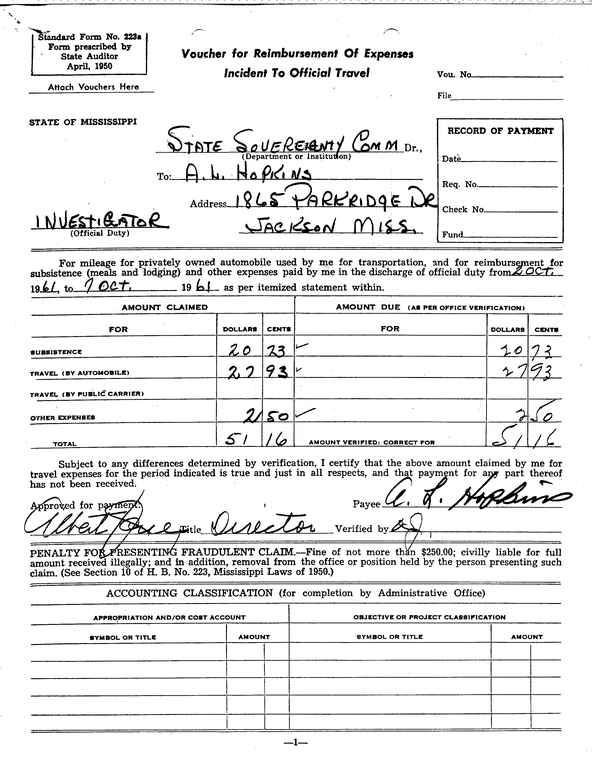 Standard Form No. 223a
Form prescribed by
State Auditor
April, 1950
Attach Vouchers Here
Voucher for Reimbursement Of Expenses
Incident To Official Travel
Vou. No.
File
STATE OF MISSISSIPPI
STATE SOVEREIGNTY COMM Dr.,
(Department or Institution)
To: A. L. HOPKINS
Address 1865 PARKRIDGE DR
INVESTIGATOR JACKSON MISS.
(Official Duty)
RECORD OF PAYMENT
Date
Req. No.
Check No.
Fund
For mileage for privately owned automobile used by me for transportation, and for reimbursement for
subsistence (meals and lodging) and other expenses paid by me in the discharge of official duty from 2 OCT.
1961, to 7 OCT. 1961 as per itemized statement within.
AMOUNT CLAIMED AMOUNT DUE (AS PER OFFICE VERIFICATION)
FOR DOLLARS CENTS FOR DOLLARS CENTS
SUBSISTENCE 20 73 20 73
TRAVEL (BY AUTOMOBILE) 27 93 27 93
TRAVEL (BY PUBLIC CARRIER)
OTHER EXPENSES 2 50 2 50
TOTAL 51 16 AMOUNT VERIFIED: CORRECT FOR 51 16
Subject to any differences determined by verification, I certify that the above amount claimed by me for
travel expenses for the period indicated is true and just in all respects, and that payment for any part thereof
has not been received.
Approved for payment: Payee A. L. Hopkins
Albert Jones Title Director Verified by
PENALTY FOR PRESENTING FRAUDULENT CLAIM.—Fine of not more than $250.00; civilly liable for full
amount received illegally; and in addition, removal from the office or position held by the person presenting such
claim. (See Section 10 of H. B. No. 223, Mississippi Laws of 1950.)
ACCOUNTING CLASSIFICATION (for completion by Administrative Office)
APPROPRIATION AND/OR COST ACCOUNT OBJECTIVE OR PROJECT CLASSIFICATION
SYMBOL OR TITLE AMOUNT SYMBOL OR TITLE AMOUNT
—1—